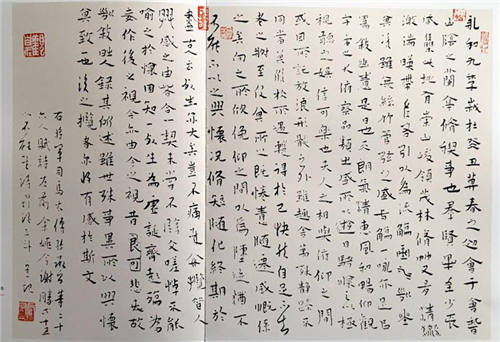 永和九年歲在癸丑暮春之初會于會稽
山陰之蘭亭修禊事也群賢畢至少長
咸集此地有崇山峻領茂林脩竹又有清流
激湍暎帶左右引以為流觴曲水列坐
其次雖無絲竹管弦之盛一觴一詠亦足以暢
叙幽情是日也天朗氣清惠風和暢仰觀
宇宙之大俯察品類之盛所以遊目騁懷足以極
視聽之娛信可樂也夫人之相與俯仰一世
或因寄所託放浪形骸之外雖趣舍萬殊靜躁不
同當其欣於所遇暫得於己快然自足不知
老之將至及其所之既惓情隨事遷感慨係
之矣向之所欣俛仰之間以為陳迹猶不
能不以之興懷況脩短隨化終期於
盡古人云死生亦大矣豈不痛哉每攬昔人
興感之由若合一契未嘗不臨文嗟悼不能
喻之於懷固知一死生為虛誕齊彭殤為
妄作後之視今亦由今之視昔悲夫故
列叙時人錄其所述雖世殊事異所以興懷
其致一也後之攬者亦將有感於斯文
右將軍司馬太傅孫承公等二十
六人賦詩 謝勝等十五
人不能賦詩罰酒各三斗